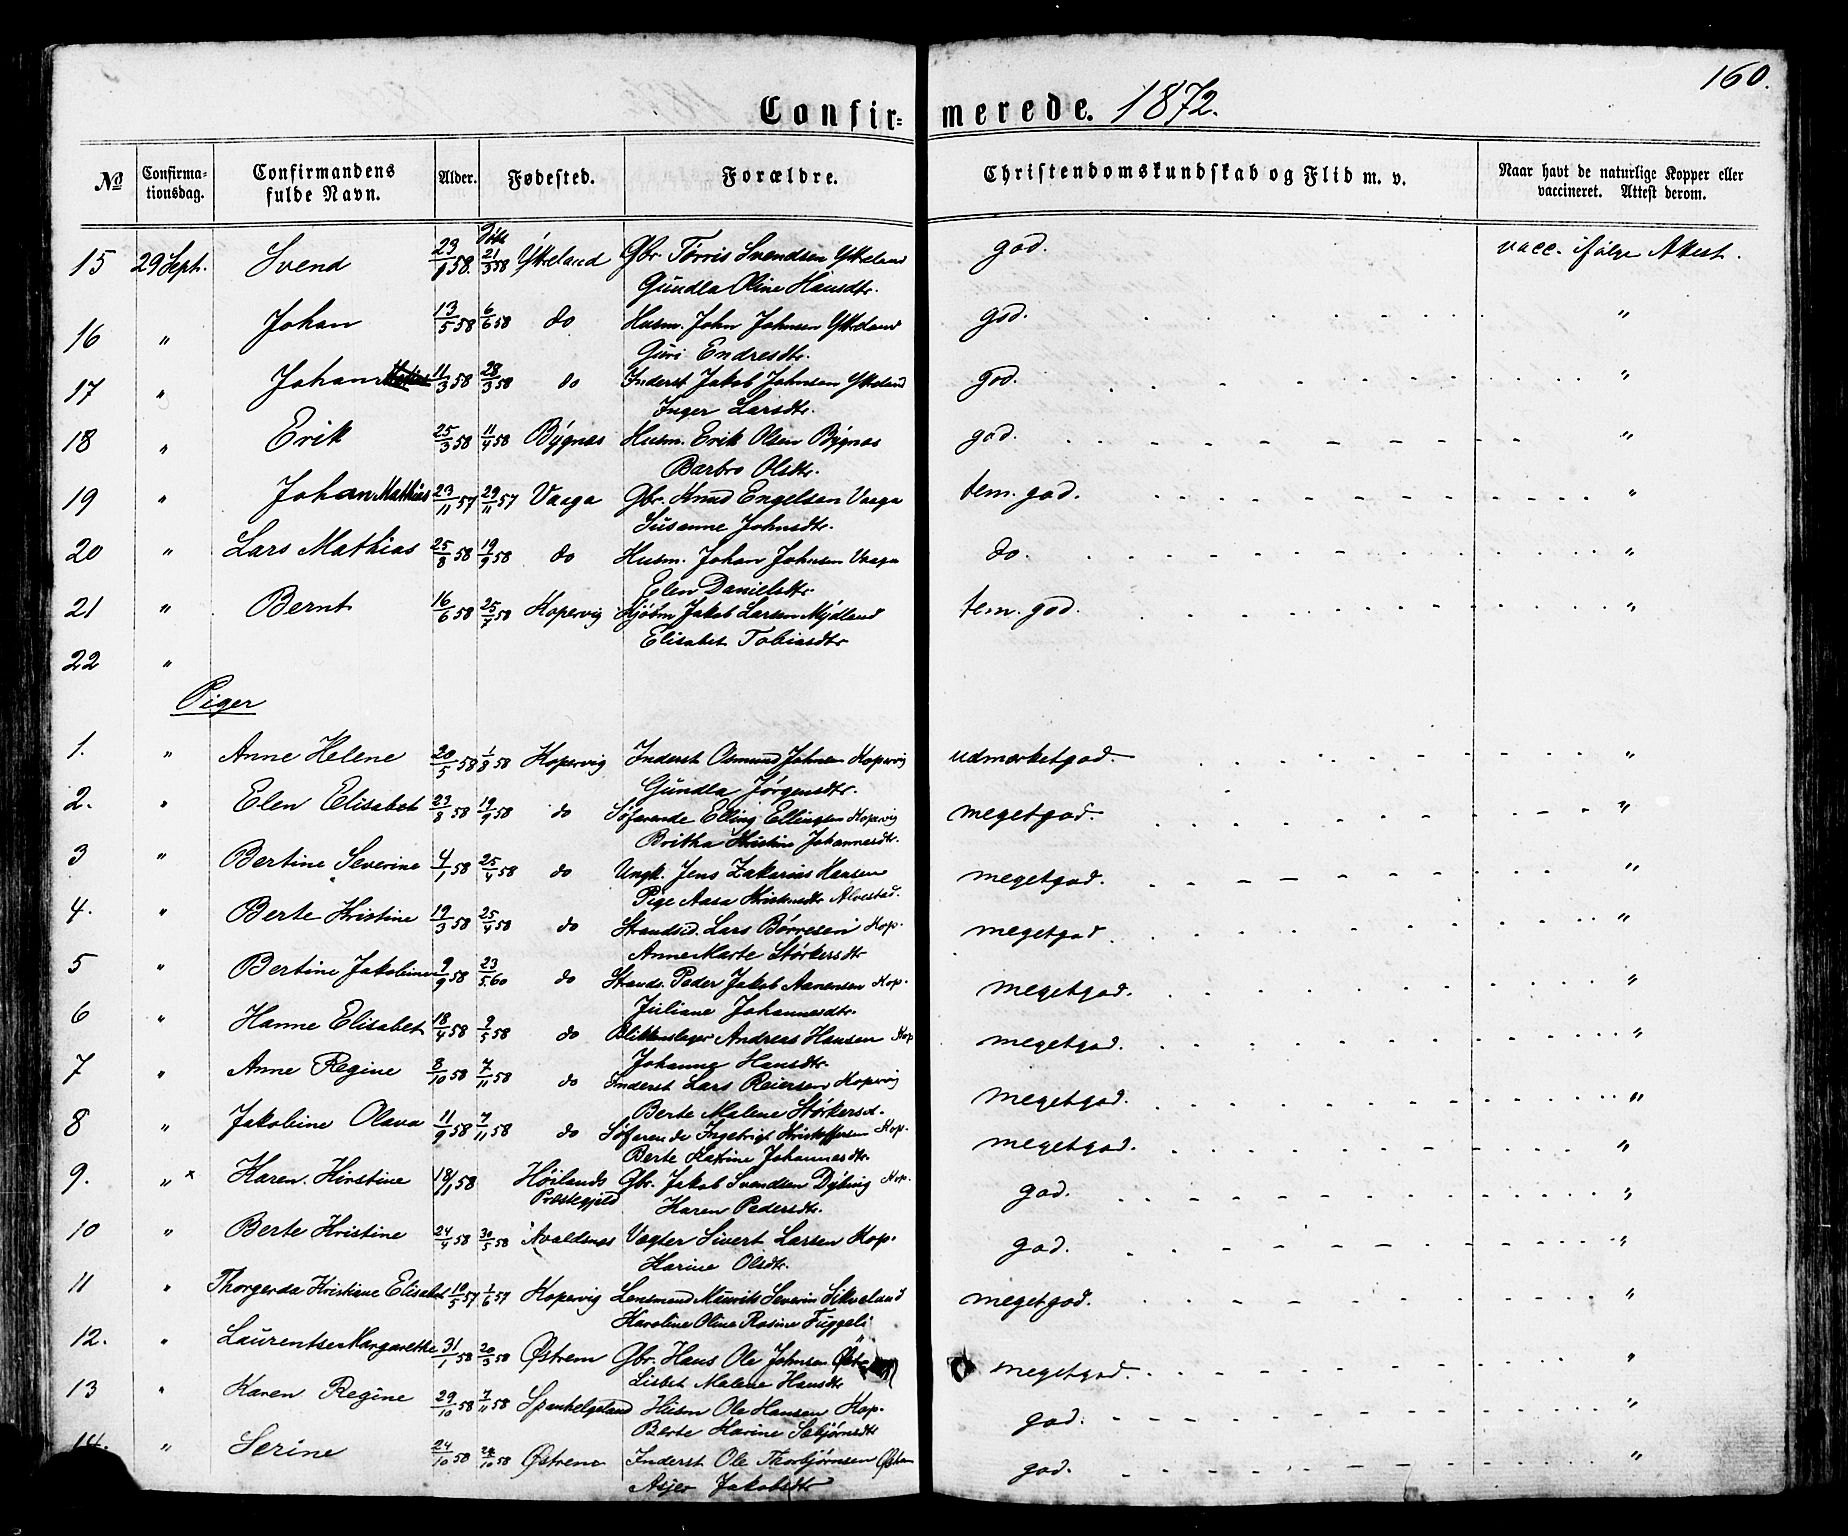 160.
Confirmerede. 1872.
No Confirmationsdag. Confirmandens fulde Navn. Alder. Fødested. Forældre. Christendomskundskab og Flid m. v. Naar havt de naturlige Kopper eller vaccineret. Attest derom.
Døbt
15 29 Sept. Svend 23/1 58. 21/3 58 Ytreland Gbr. Tørris Svendsen Ytreland god. vacc. ifølge Attest.
Gundla Oline Hansdtr.
16 " Johan 13/5 58 6/6 58 do Husm. John Johnsen Ytreland god. "
Guri Endresdtr.
17 " Johan 11/3 58 28/3 58 do Inderst Jakob Johnsen Ytreland god. "
Inger Larsdtr.
18 " Erik 25/3 58 11/4 58 Bygnæs Husm. Erik Olsen Bygnæs god. "
Barbro Olsdtr.
19 " Johan Mathias 23/11 57 29/11 57 Vaaga Gbr. Knud Engelsen Vaaga tem. god. "
Susanne Johnsdtr.
20 " Lars Mathias 25/8 58 19/9 58 do Husm. Johan Johnsen Vaaga do. "
Elen Danielsdtr
21 " Bernt 16/6 58 25/7 58 Kopervig Kjøbm Jakob Larsen Mydland tem. god. "
Elisabet Tobiasdtr
22 "
Piger
1. " Anne Helene 20/5 58 1/8 58 Kopervig Inderst Osmund Johnsen Kopervig udmærketgod. "
Gundla Jørgensdtr.
2. " Elen Elisabet 23/8 58 19/9 58 do Søfarende Elling Ellingsen Kopervig megetgod. "
Britha Kristine Johannesdtr.
3 " Bertine Severine 4/1 58 25/4 58 do Ungk. Jens Zakarias Hansen megetgod. "
Pige Aasa Kristensdtr Alvestad.
4. " Berte Kristine 19/3 58 25/4 58 do Strandsid. Lars Børresen Kop. megetgod. "
Anne Marte Størkersdtr
5 " Bertine Jakobine 9/9 58 23/5 60 do Strands. Peder Jakob Aanensen Kop. megetgod. "
Juliane Johannesdtr.
6 " Hanne Elisabet 18/4 58 9/5 58 do Blikkenslager Andreas Hansen Kop megetgod. "
Johanne Hansdtr.
7 " Anne Regine 8/10 58 7/11 58 do Inderst Lars Reiersen Kopervig megetgod. "
Berte Malene Størkersd.
8 " Jakobine Olava 11/9 58 7/11 58 do Søfarende Ingebrigt Kristoffersen Kop. megetgod. "
Berte Katrine Johannesdtr.
9. " x Karen Kirstine 18/1 58 Høilands Præstegjeld Gbr. Jakob Svendsen Dybing Kop. god. "
Karen Pedersdtr.
10 " Berte Kristine 24/4 58 30/5 58 Avaldsnes Vægter Sivert Larsen Kop. god. "
Karine Olsdtr.
11 " Thorgerda Kristiane Elisabet 10/5 57 1/6 57 Kopervig Lensmand Maurits Severin Sikveland megetgod. "
Karoline Oline Rosine Fuggeli
12. " Laurentse Margarethe 31/1 58 20/3 58 Østrem Gbr. Hans Ole Johnsen megetgod. "
Lisbet Malene Hansdtr
13 " Karen Regine 29/10 58 7/11 58 Spanhelgeland Husm Ole Hansen Kop. god. "
Berte Karine Sebjørnsdtr
14. " Serine 24/10 58 /10 58 Østrem Inderst Ole Thorbjørnsen Østrem god. "
Jakobsdtr